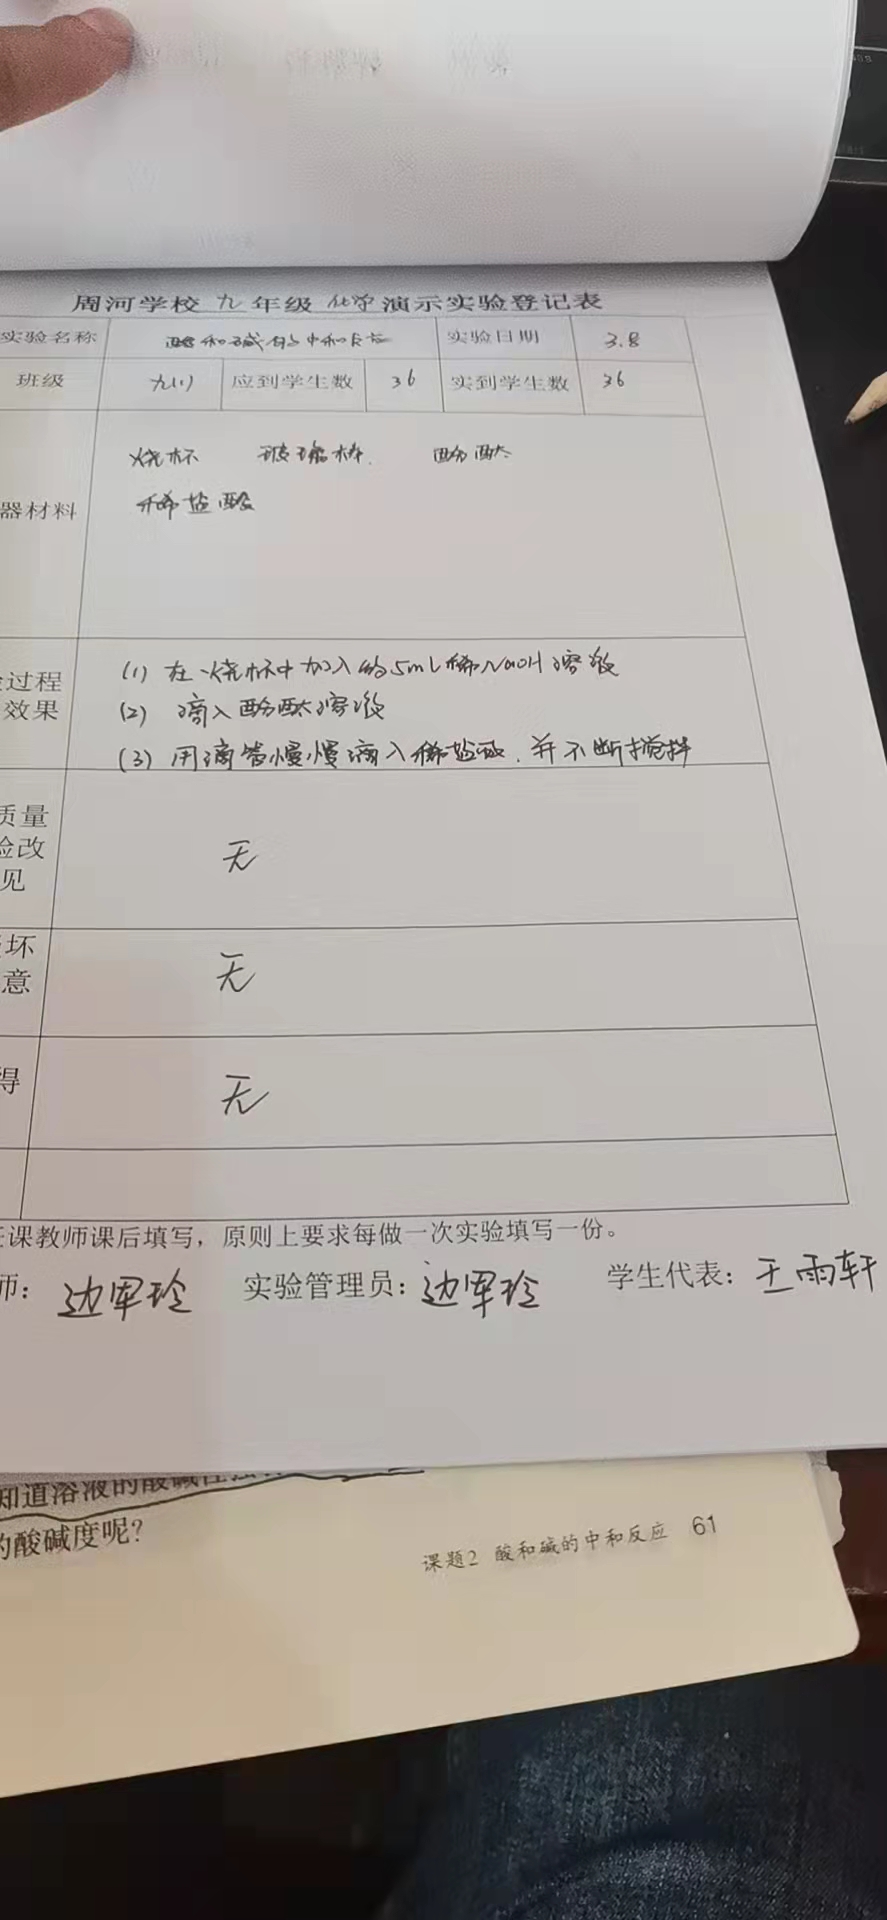 周河学校 九 年级 化学 演示实验登记表
实验名称 酸和碱的中和反应 实验日期 3.8
班级 九(1) 应到学生数 36 实到学生数 36
器材料
烧杯 玻璃棒 酚酞
稀盐酸
过程
效果
(1) 在烧杯中加入约5mL稀NaOH溶液
(2) 滴入酚酞溶液
(3) 用滴管慢慢滴入稀盐酸,并不断搅拌
质量
验改
见
无
坏
意
无
得
无
任课教师课后填写，原则上要求每做一次实验填写一份。
师: 边军玲 实验管理员: 边军玲 学生代表: 王雨轩
知道溶液的酸碱性强
的酸碱度呢?
课题2 酸和碱的中和反应 61